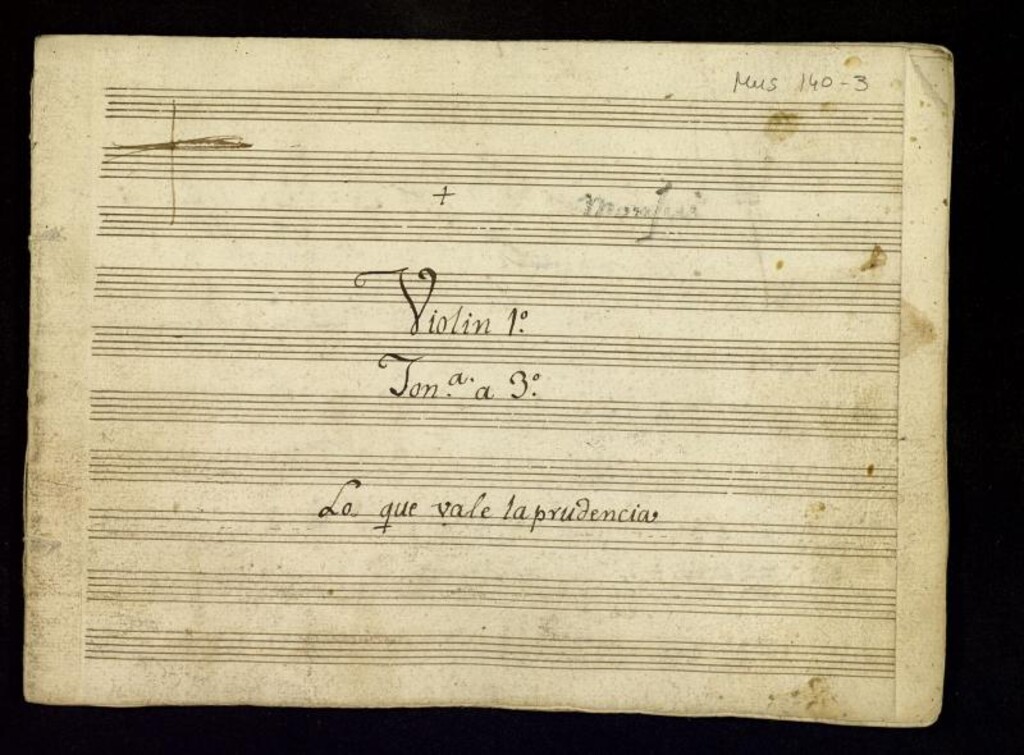 Mus 140-3
+
Violin 1º
Ton.ª a 3º
Lo que vale la prudencia